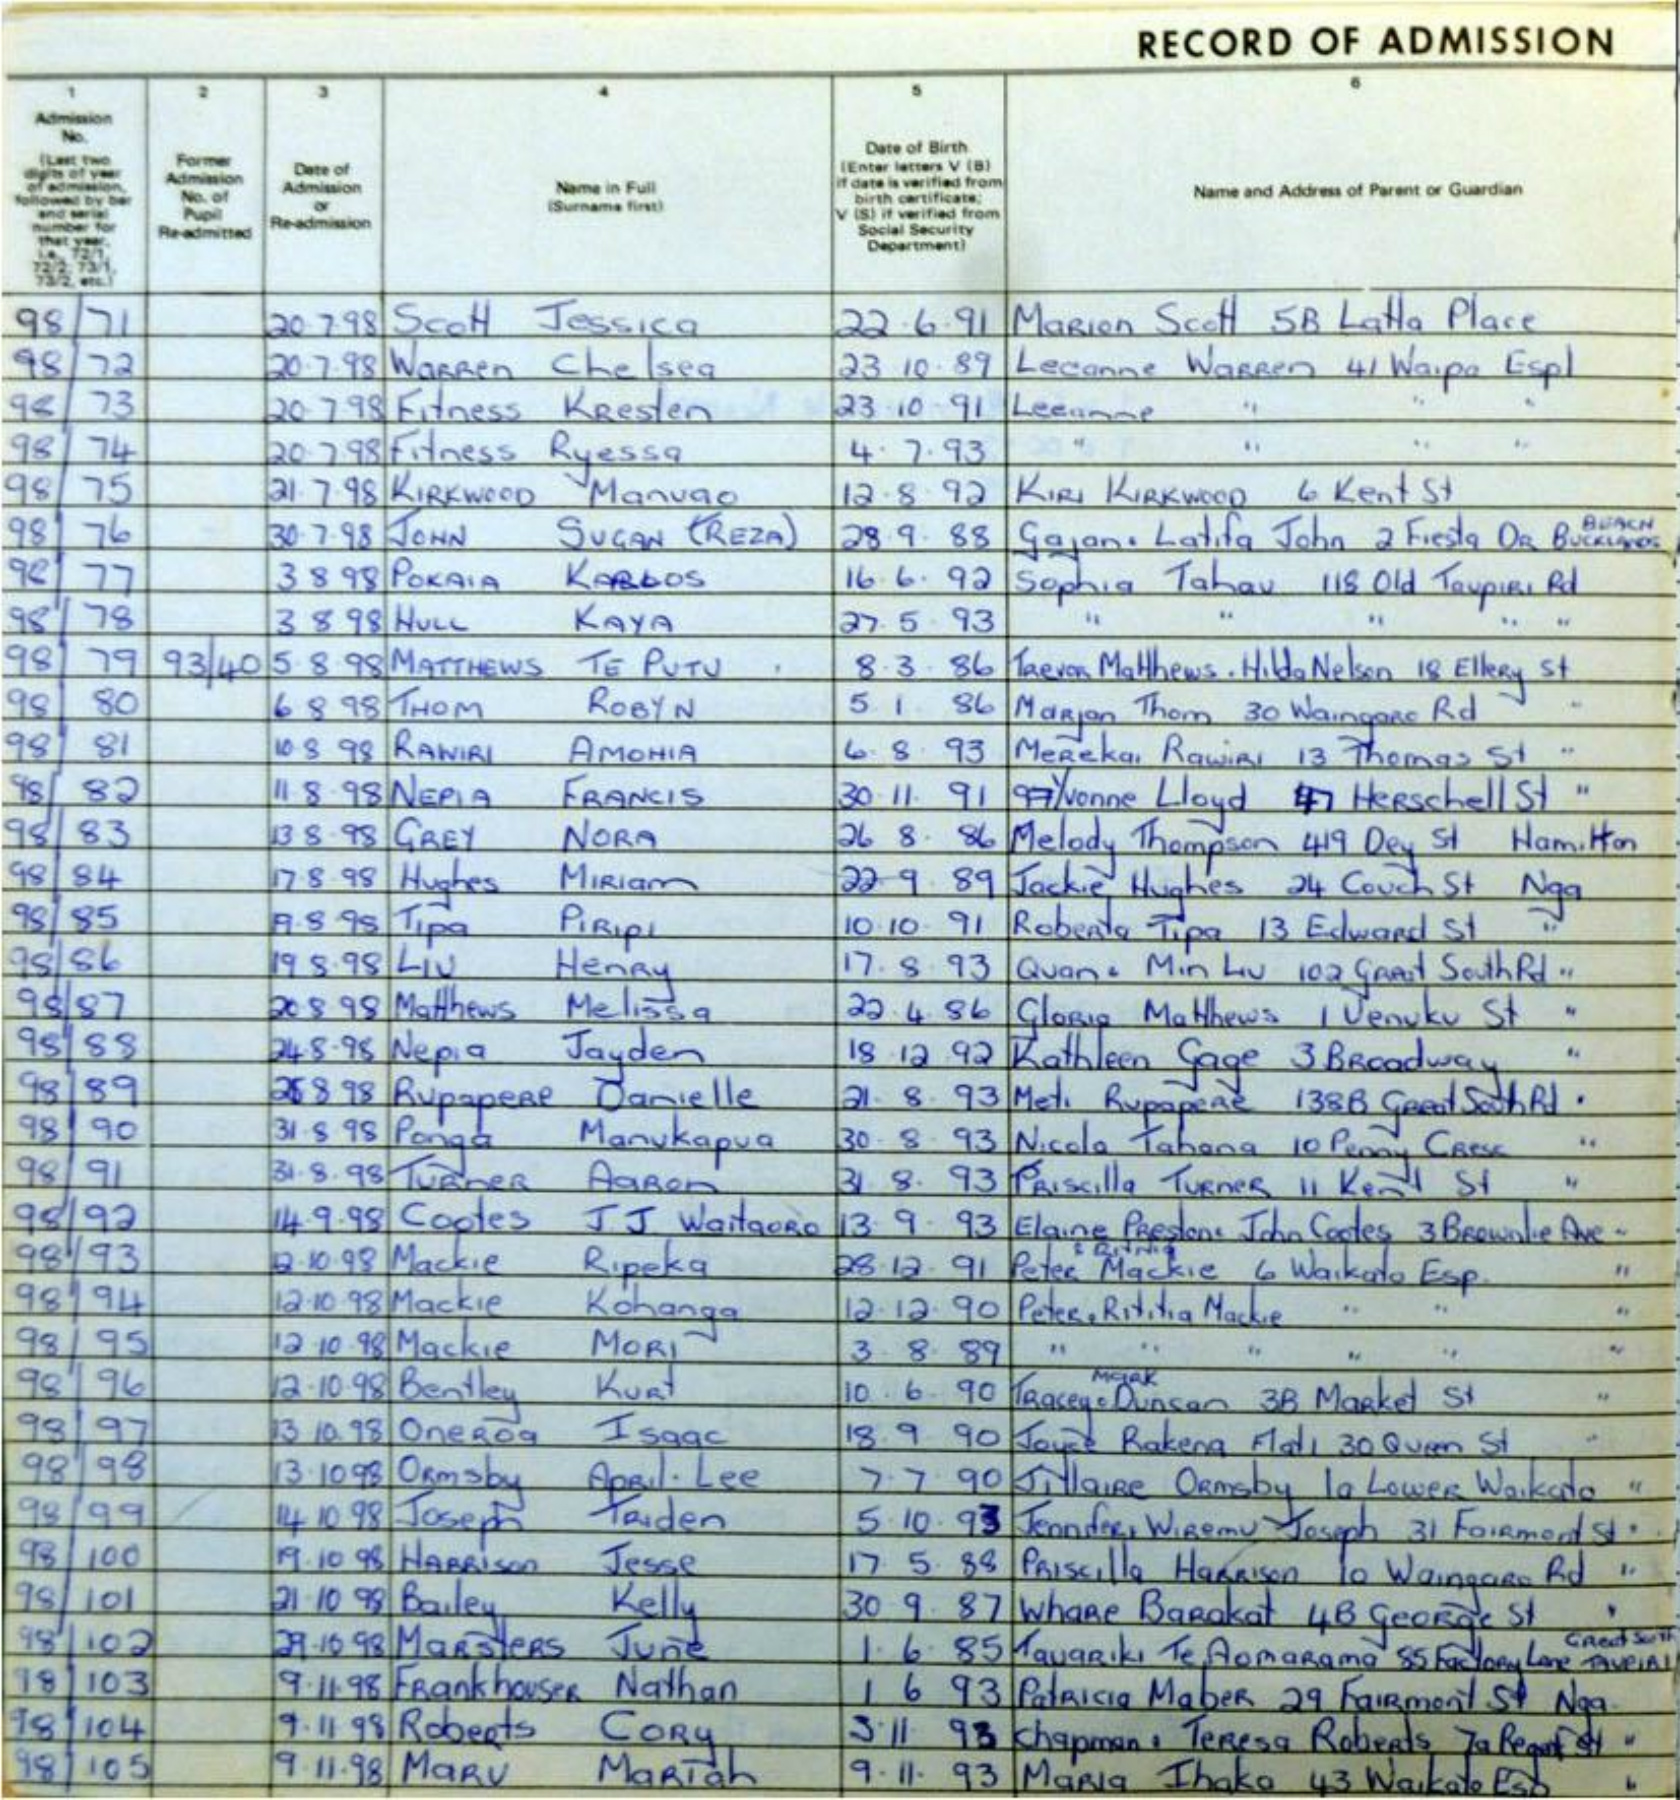 RECORD OF ADMISSION
1 2 3 4 5 6
Admission No. (Last two digits of year of admission, followed by bar and serial number for that year, i.e., 72/1, 72/2, 73/1, 73/2, etc.)
Former Admission No. of Pupil Re-admitted
Date of Admission or Re-admission
Name in Full (Surname first)
Date of Birth (Enter letters V (B) if date is verified from birth certificate; V (S) if verified from Social Security Department)
Name and Address of Parent or Guardian
98/71 20.7.98 Scott Jessica 22.6.91 Marion Scott 5B Latta Place
98/72 20.7.98 Warren Chelsea 23.10.89 Leeanne Warren 41 Waipa Espl
98/73 20.7.98 Fitness Kresten 23.10.91 Leeanne " " "
98/74 20.7.98 Fitness Ryessa 4.7.93 " " " "
98/75 21.7.98 KIRKWOOD Manuao 12.8.92 KIRI KIRKWOOD 6 Kent St
98/76 30.7.98 JOHN SUGAN (REZA) 28.9.88 Gajan & Latifa John 2 Fiesta DR BUCKLANDS BEACH
98/77 3 8 98 POKAIA KARLOS 16.6.92 Sophia Tahau 118 Old Taupiri Rd
98/78 3 8 98 HULL KAYA 27.5.93 " " " " "
98/79 93/40 5 8 98 MATTHEWS TE PUTU 8.3.86 Trevor Matthews & Hilda Nelson 18 Ellery St
98/80 6 8 98 THOM ROBYN 5.1.86 Marjan Thom 30 Waingaro Rd "
98/81 10 8 98 RAWIRI AMOHIA 6.8.93 Merekai Rawiri 13 Thomas St "
98/82 11 8 98 NEPIA FRANCIS 30.11.91 Yvonne Lloyd 47 Herschell St "
98/83 13 8 98 GREY NORA 26.8.86 Melody Thompson 419 Dey St Hamilton
98/84 17 8 98 Hughes Miriam 22.9.89 Jackie Hughes 24 Couch St Nga
98/85 19.8.98 Tipa Piripi 10.10.91 Roberta Tipa 13 Edward St "
98/86 19 8.98 Liu Henry 17.8.93 Quan & Min Liu 102 Great South Rd "
98/87 20 8 98 Matthews Melissa 22.4.86 Gloria Matthews 1 Uenuku St "
98/88 24.8.98 Nepia Jayden 18.12.92 Kathleen Gage 3 Broadway "
98/89 25 8 98 Rupapere Danielle 21.8.93 Meti Rupapere 138B Great South Rd "
98/90 31.8.98 Ponga Manukapua 30.8.93 Nicola Tahana 10 Penny Cresc "
98/91 31.8.98 Turner Aaron 31.8.93 Priscilla Turner 11 Kent St "
98/92 14.9.98 Cootes JJ Waitaoro 13.9.93 Elaine Preston & John Cootes 3 Brownlie Ave "
98/93 12.10.98 Mackie Ripeka 28.12.91 Peter Mackie 6 Waikato Esp. "
98/94 12.10.98 Mackie Kohanga 12.12.90 Peter & Rititia Mackie " " "
98/95 12.10.98 Mackie MORI 3.8.89 " " " " " "
98/96 12.10.98 Bentley Kurt 10.6.90 Tracey & Mark Duncan 3B Market St "
98/97 13.10.98 Oneroa Isaac 18.9.90 Joyce Rakena Flat 1 30 Queen St "
98/98 13.10 98 Ormsby April-Lee 7.7.90 Jillaire Ormsby 10 Lower Waikato "
98/99 14.10 98 Joseph Triden 5.10.93 Jennifer & Wiremu Joseph 31 Fairmont St "
98/100 19.10 98 Harrison Jesse 17.5.88 Priscilla Harrison 10 Waingaro Rd "
98/101 21.10 98 Bailey Kelly 30.9.87 Whare Barakat 4B George St "
98/102 29.10 98 Marsters June 1.6.85 Tauariki Te Aomarama 85 Factory Lane Great South TAUPIRI
98/103 9.11.98 Frankhouser Nathan 1 6 93 Patricia Maber 29 Fairmont St Nga.
98/104 9.11 98 Roberts Cory 3.11 93 Chapman & Teresa Roberts 7a Regent St "
98/105 9.11.98 Maru Mariah 9.11.93 Maria Ihaka 43 Waikato Esp "